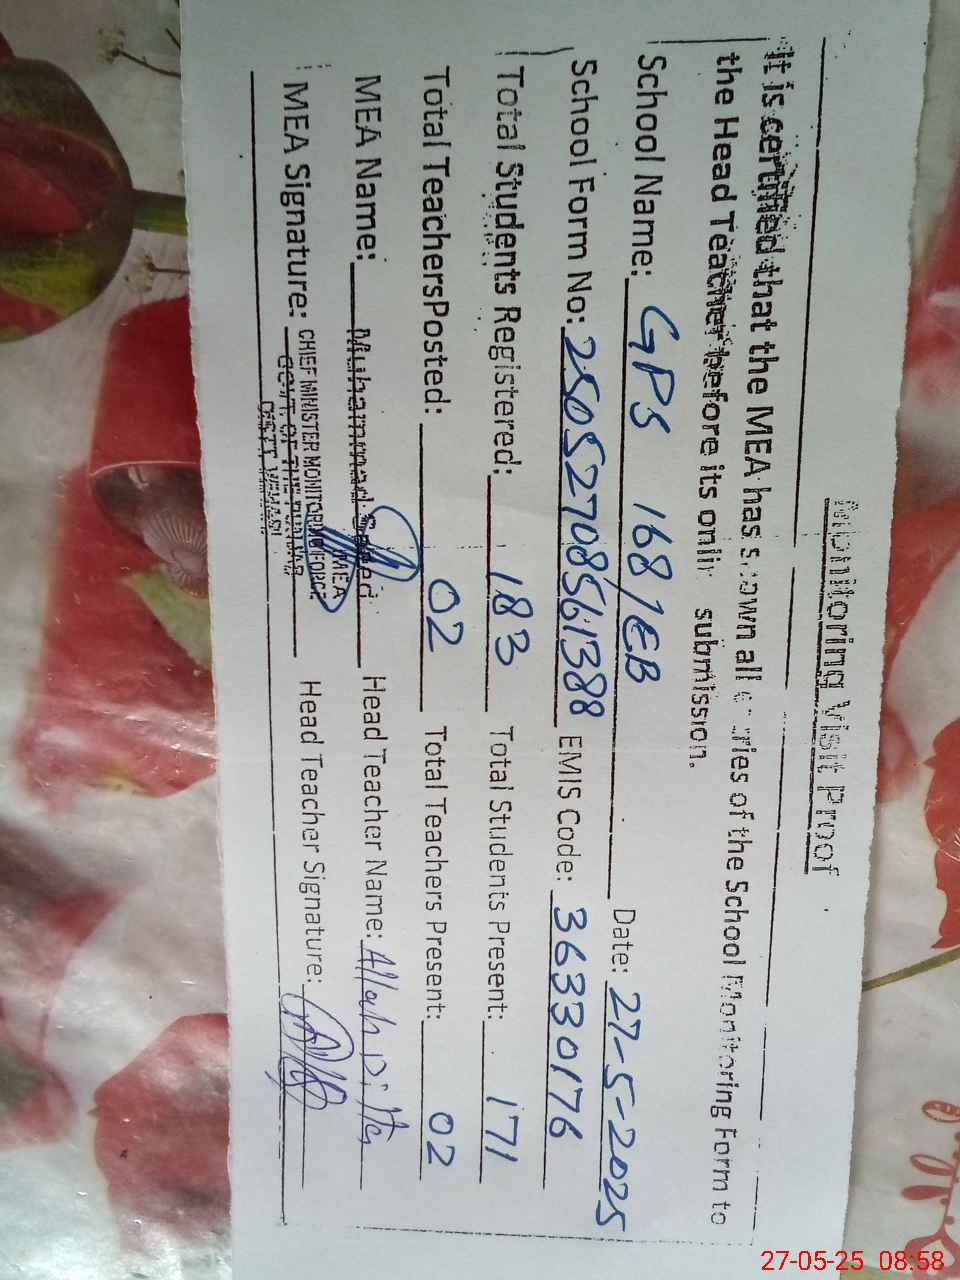 Monitoring Visit Proof
It is certified that the MEA has shown all entries of the School Monitoring Form to
the Head Teacher before its online submission.
School Name: GPS 168/EB Date: 27-5-2025
School Form No: 25052708561388 EMIS Code: 36330176
Total Students Registered: 183 Total Students Present: 171
Total TeachersPosted: 02 Total Teachers Present: 02
MEA Name: Muhammad Saeed Head Teacher Name: Allah Ditta
MEA
MEA Signature: CHIEF MINISTER MONITORING FORCE Head Teacher Signature:
GOVT. OF THE PUNJAB
DISTT. VEHARI
27-05-25 08:58